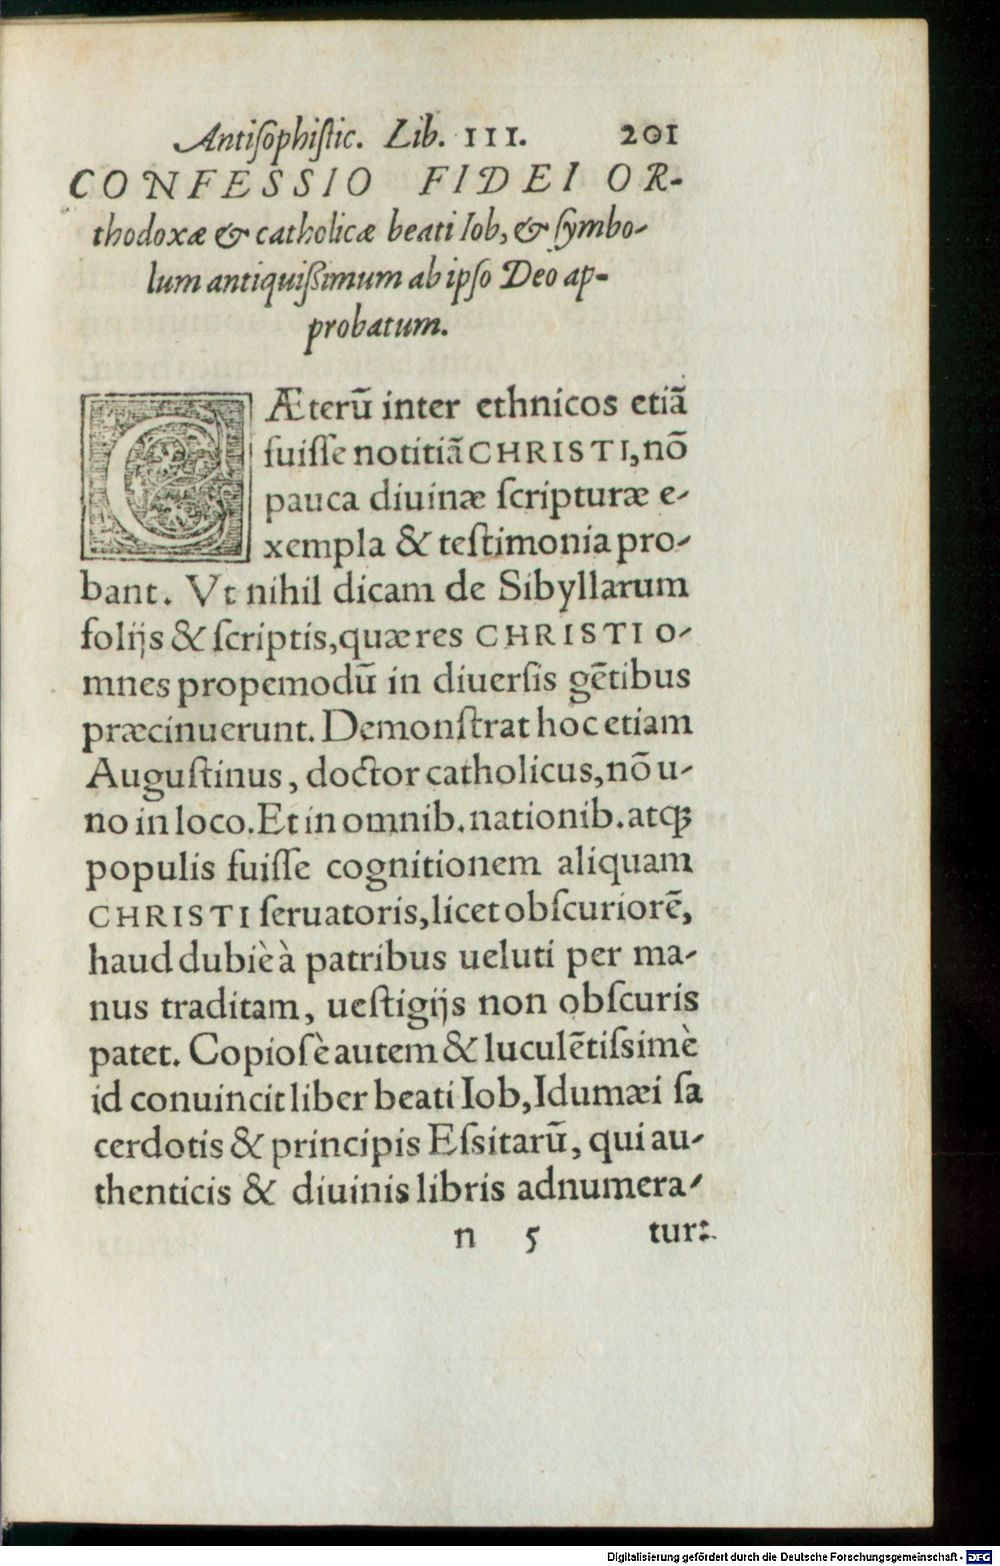 Antiſophiſtic. Lib. III. 201
CONFESSIO FIDEI OR-
thodoxæ & catholicæ beati Iob, & ſymbo-
lum antiquißimum ab ipſo Deo ap-
probatum.
CÆterũ inter ethnicos etiã
fuiſſe notitiã CHRISTI, nõ
pauca diuinæ ſcripturæ e-
xempla & teſtimonia pro-
bant. Vt nihil dicam de Sibyllarum
folijs & ſcriptis, quæ res CHRISTI o-
mnes propemodũ in diuerſis gẽtibus
præcinuerunt. Demonſtrat hoc etiam
Auguſtinus, doctor catholicus, nõ u-
no in loco. Et in omnib. nationib. atqꝫ
populis fuiſſe cognitionem aliquam
CHRISTI ſeruatoris, licet obſcuriorẽ,
haud dubiè à patribus ueluti per ma-
nus traditam, ueſtigijs non obſcuris
patet. Copioſè autem & luculẽtiſsimè
id conuincit liber beati Iob, Idumæi ſa
cerdotis & principis Eſsitarũ, qui au-
thenticis & diuinis libris adnumera-
n 5 tur:
Digitalisierung gefördert durch die Deutsche Forschungsgemeinschaft - DFG